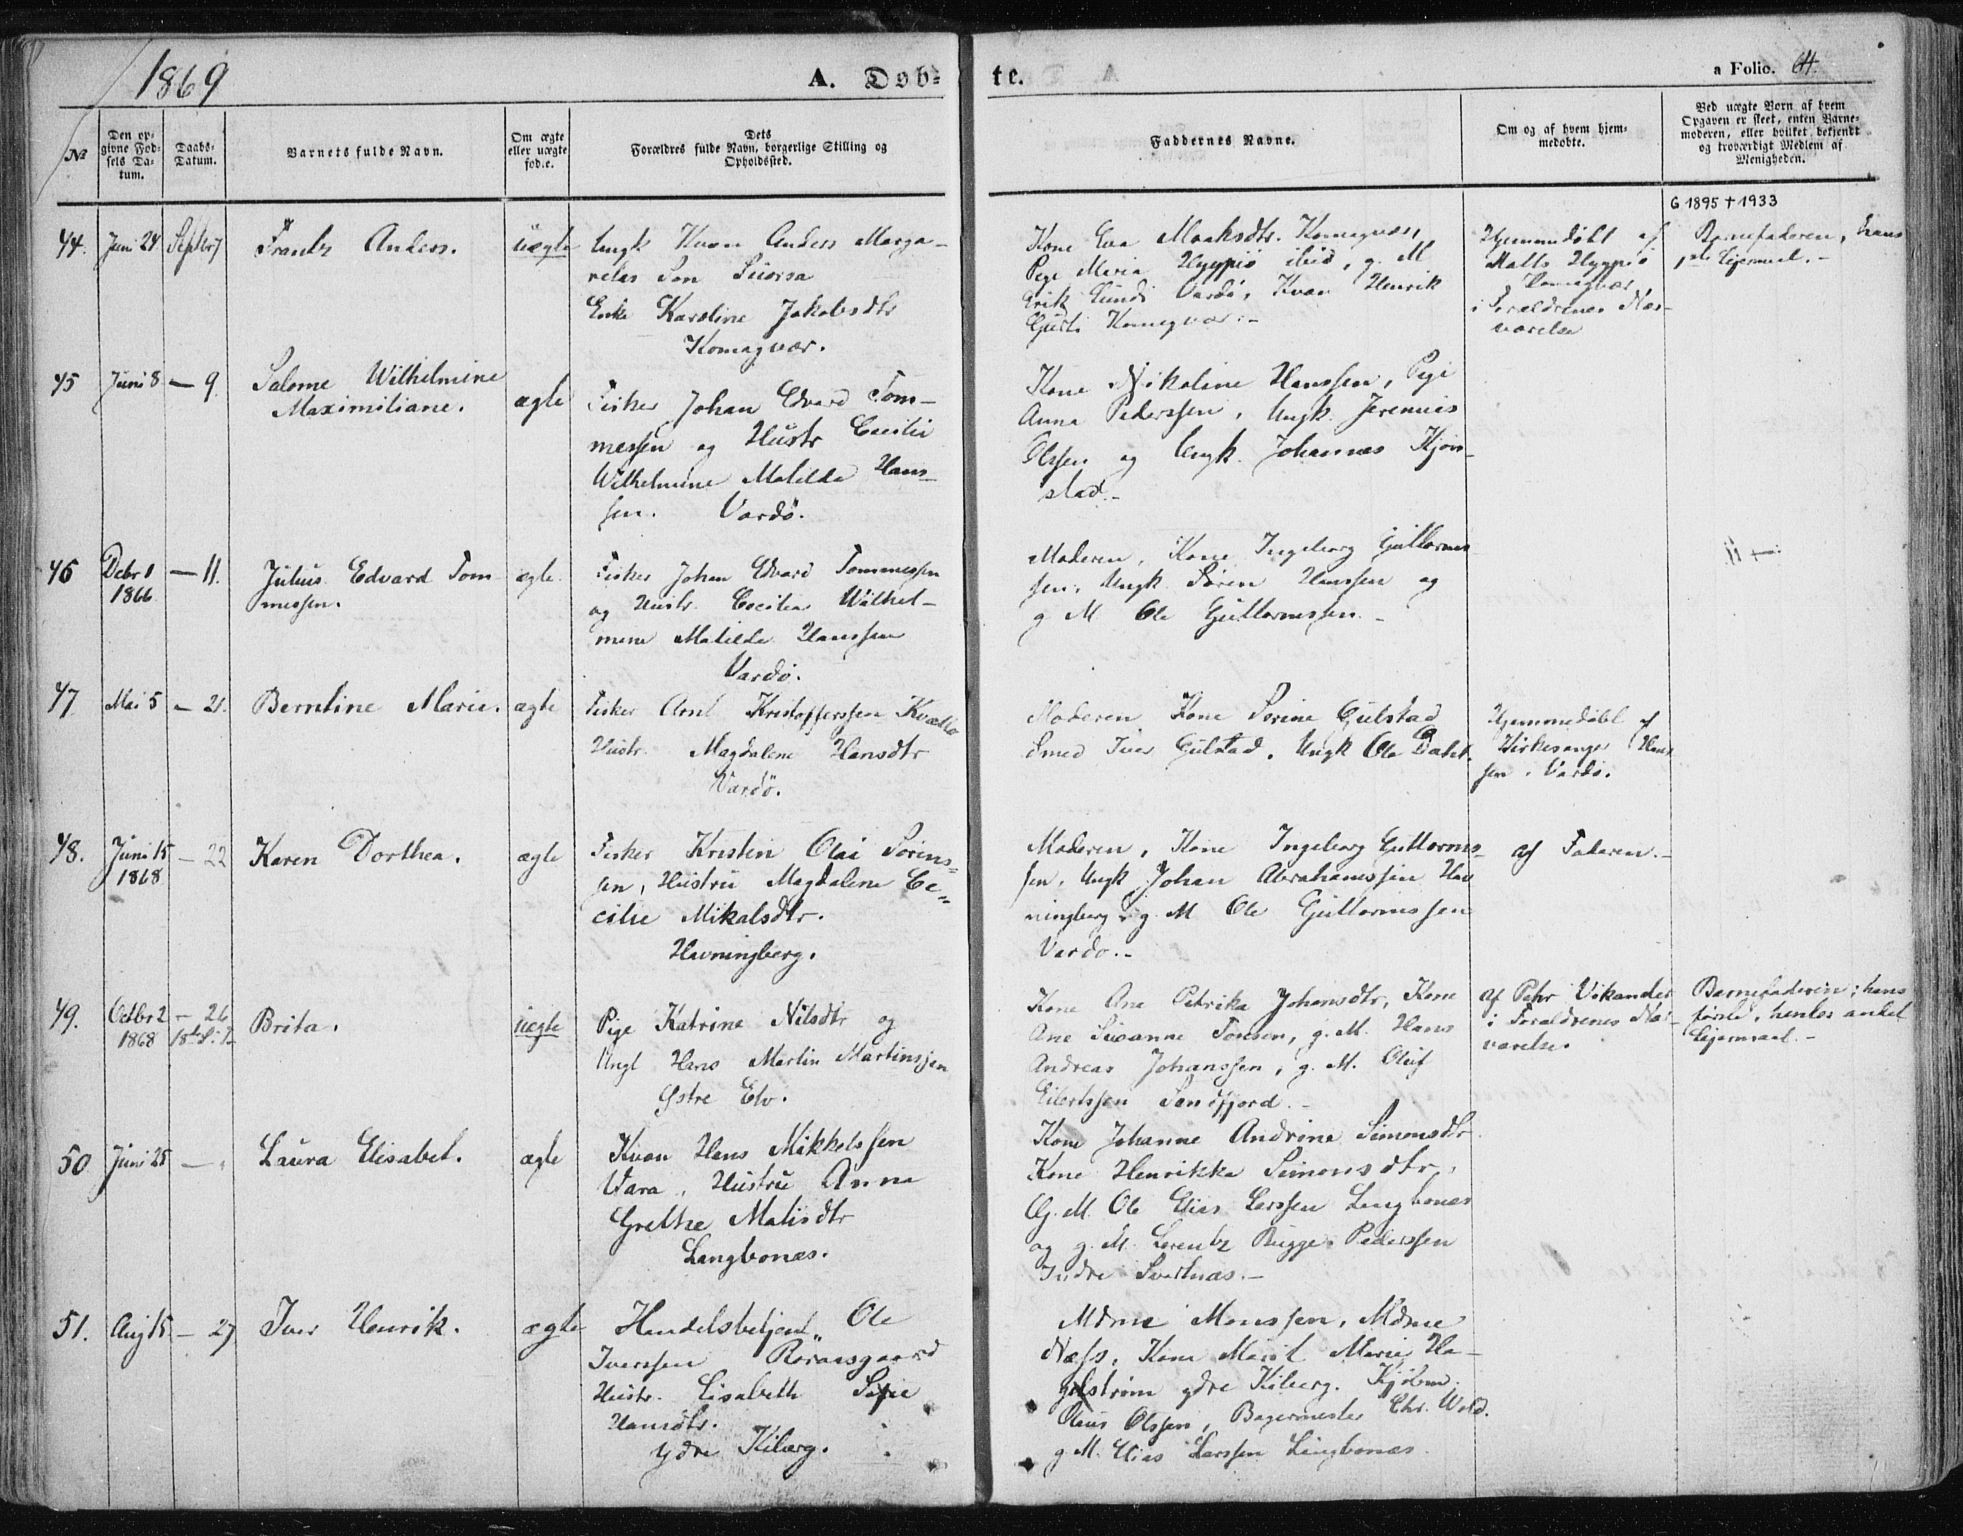 1869
A. Døb=
te.
a Folio. 64.
No
Den op=
givne Fød=
sels Da=
tum.
Daabs=
Datum.
Barnets fulde Navn.
Om ægte
eller uægte
fød.e.
Dets
Forældres fulde Navn, borgerlige Stilling og
Opholdssted.
Faddernes Navne.
Om og af hvem hjem=
medøbte.
Ved uægte Børn af hvem
Opgaven er skeet, enten Barne=
moderen, eller hvilket bekjendt
og troværdigt Medlem af
Menigheden.
G 1895 + 1933
44. Juni 24 Septbr 7 Frantz Anders. uægte Ungk Kvæn Anders Marga-
retas Søn Siorsa
Enke Karoline Jakobsdtr
Komagvær.
Kone Eva Maaksdtr. Komagvær,
Pige Maria Hyypiö ibid, g. M
Erik Lundi Vardø, Kvæn Henrik
Komagvær.-
Hjemmedøbt af
Matts Hyypiö
Komagvær
i Forældrenes Nær-
værelse
Barnefaderen, hans
1ste Leiermaal.-
45 Juni 8 - 9. Salome Wilhelmine
Maximiliane. ægte
Fisker Johan Edvard Tom-
messen og Hustr Cecilie
Wilhelmine Matilda Hans-
sen. Vardö.
Kone Nikoline Hanssen, Pige
Anna Pederssen, Ungk. Jeremias
Olssen og Ungk. Johannes Kjøn-
stad.-
46 Debr 1
1866 - 11. Julius Edvard Tom-
messen. ægte.
Fisker Johan Edvard Tommessen
og Hustr. Cecilia Wilhel-
mine Matilde Hanssen
Vardö.
Moderen, Kone Ingeborg Guttorms-
sen, Ungk Søren Hanssen og
g M Ole Guttormssen.-
47 Mai 5 - 21. Berntine Marie. ægte
Fisker Arnt Kristofferssen
Hustr. Magdalene Hansdtr
Vardö.
Moderen Kone Serine Gulstad
Smed Iver Gulstad, Ungk Ole
Hjemmedøbt af
Kirkesanger Hans-
sen, Vardø.
48. Juni 15
1868 - 22 Karen Dorthea. ægte
Fisker Kristen Olai Sörens-
sen, Hustru Magdalene Ce-
cilie Mikalsdtr.
Havningberg.
Moderen, Kone Ingeborg Guttorms-
sen, Ungk Johan Abrahamssen Hav
ningberg, g. M Ole Guttormssen
Vardø.-
af Faderen.-
49. Octbr 2
1868 - 26 Brita. uægte
Pige Katrine Nilsdtr og
Ungk Hans Martin Martinssen
Østre Elv.
Kone Ane Petrika Johansdtr, Kone
Ane Susanne Tonsen, g. M. Hans
Andreas Johanssen, g. M. Oluf
Eilertssen Sandfjord.-
af Pehr Vikander
i Forældrenes Nær-
værelse.
Barnefaderen; hans
første, hendes andet
Leiermaal.-
50 Juni 25 - Laura Elisabet. ægte
Kvæn Hans Mikkelssen
Vara, Hustru Anna
Grethe Matisdtr
Langbonæs.
Kone Johanne Andrine Simonsdtr
Kone Henrikke Simonsdtr,
G. M. Ole Elias Larssen Langbonæs
og g. M. Lorentz Bugge Pederssen
Indre Svartnæs.-
51. Aug 15 - 27 Iver Henrik. ægte
Handelsbetjent Ole
Iverssen
Hustr. Elisabeth Sofie
Hansdtr.
Ydre Kiberg.
Mdme Monssen, Mdme
Næss, Kone Marit Marie Ha-
gelstrøm ydre Kiberg. Kjøbm.
Olaus Olssen, Bagermester Chr. Wold.
g. M. Elias Larssen Langbonæs.